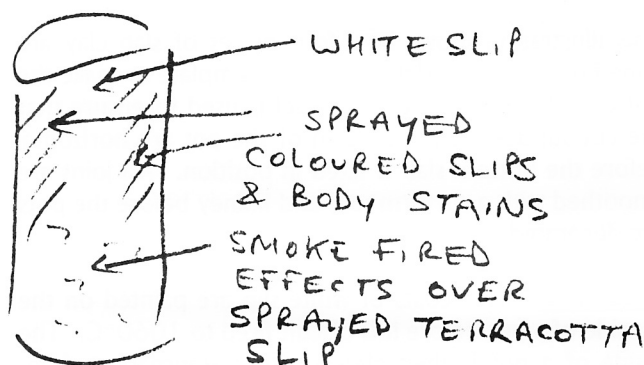 WHITE SLIP
SPRAYED
COLOURED SLIPS
& BODY STAINS
SMOKE FIRED
EFFECTS OVER
SPRAYED TERRACOTTA
SLIP